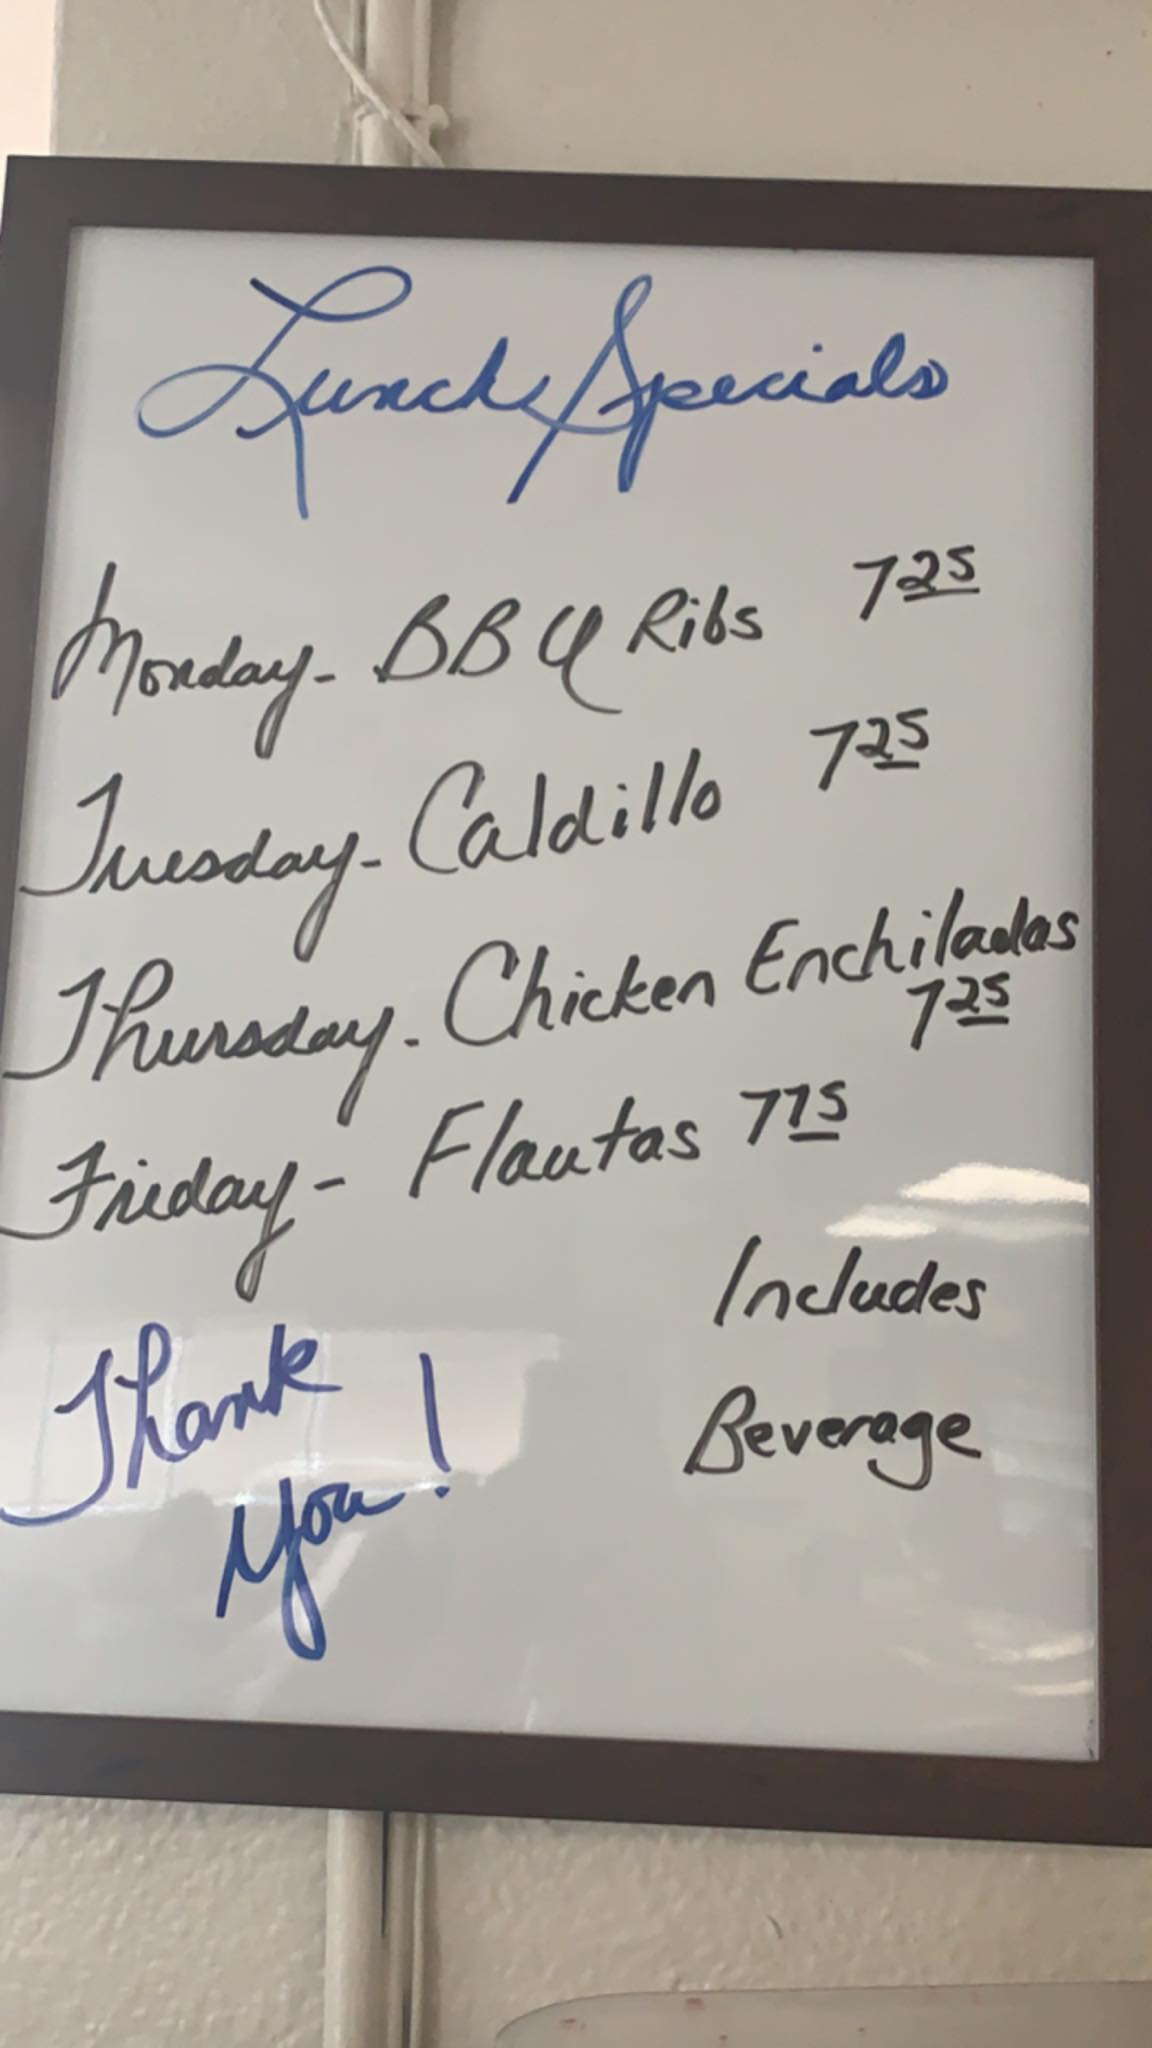 Lunch Specials
Monday - BBQ Ribs 7 25
Tuesday - Caldillo 7 25
Thursday - Chicken Enchiladas
7 25
Friday - Flautas 7 75
Includes
Beverage
Thank
You!